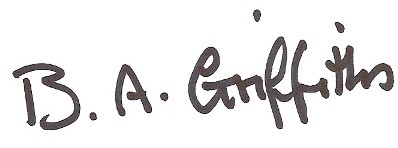 B. A. Griffiths